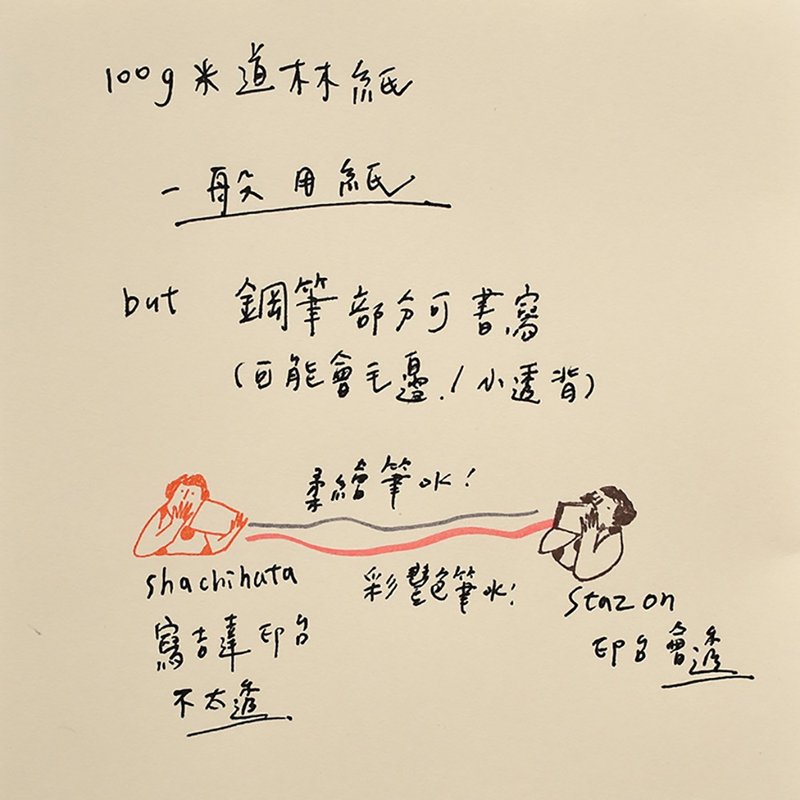 100g米道林紙
一般用紙
but 鋼筆部分可書寫
(可能會毛邊/小透背)
柔繪筆ok!
彩艷筆ok!
shachihata
寫吉達印台
不太透
stazon
印台會透